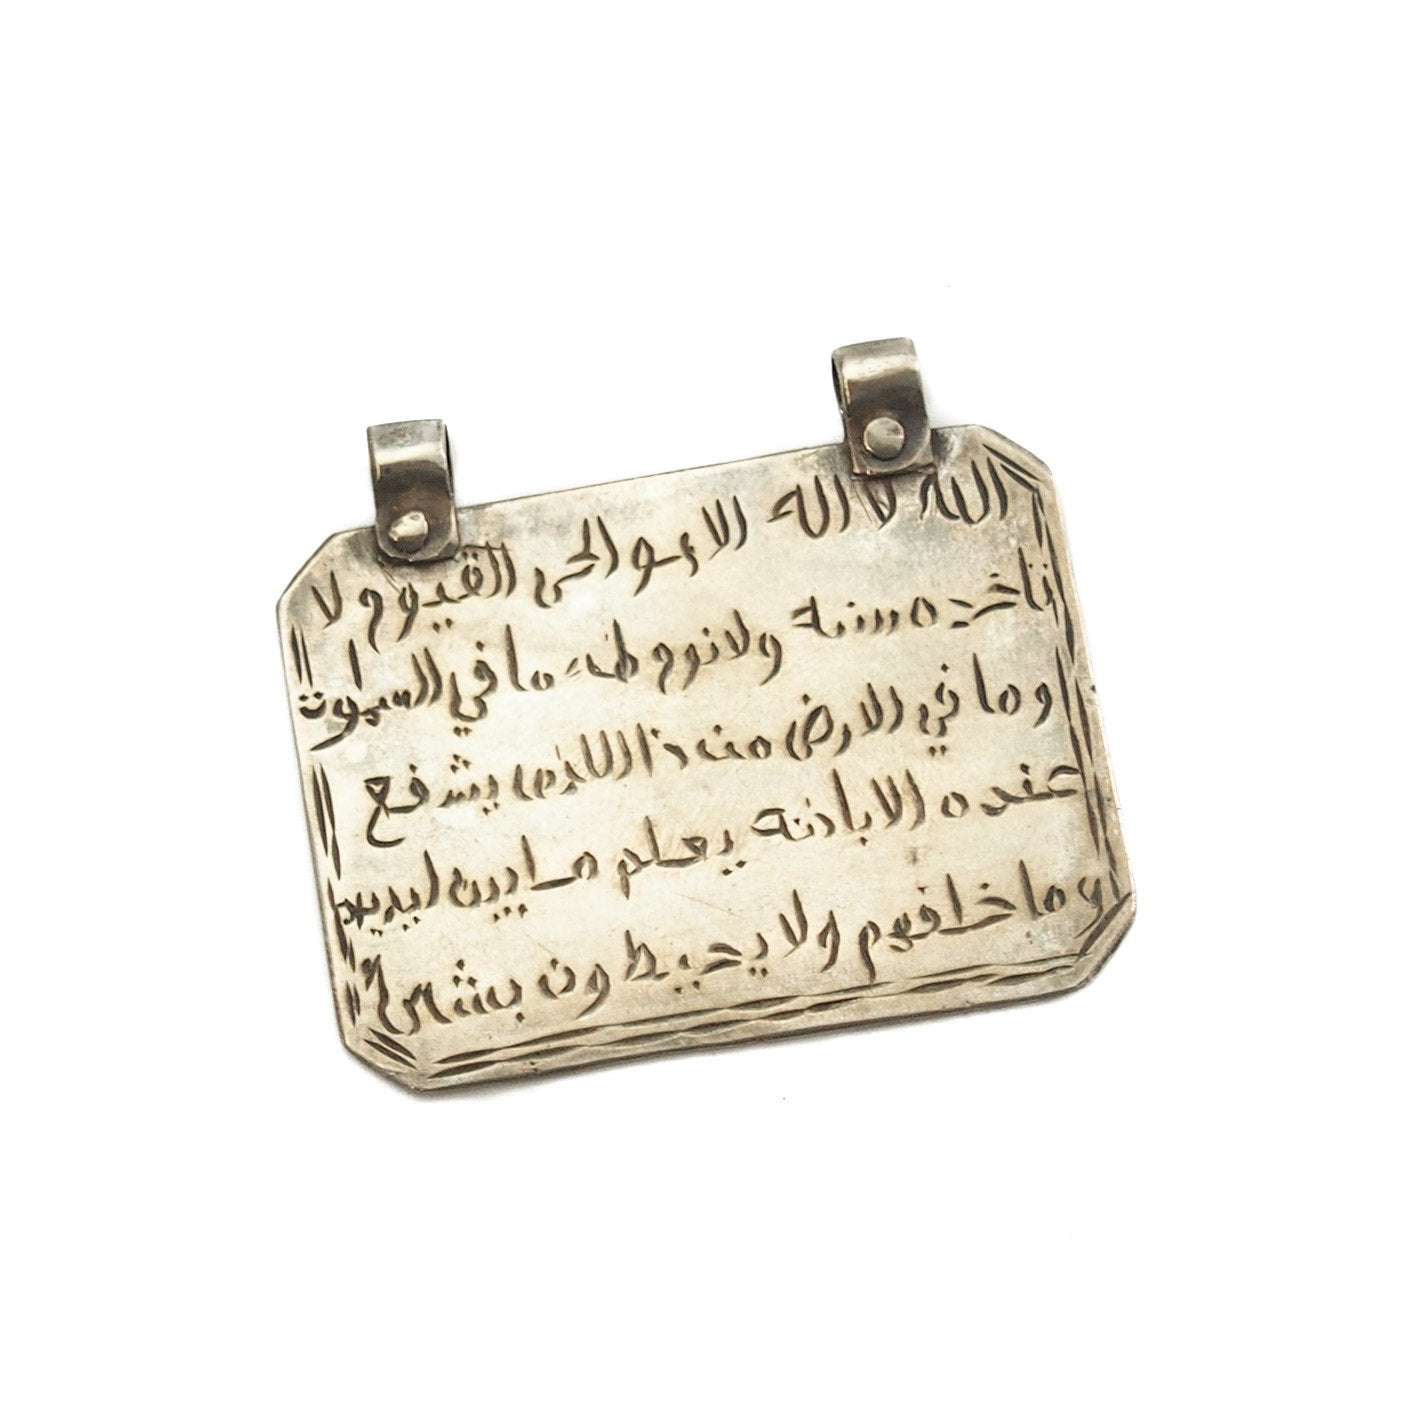 الله لا اله الا هو الحى القيوم لا
تاخده سنه ولا نوم له ما في السموت
وما في الارض من ذا اللذى يشفع
عنده الا باذنه يعلم ما بين ايديهم
وما خافهم ولا يحيطون بشىئ